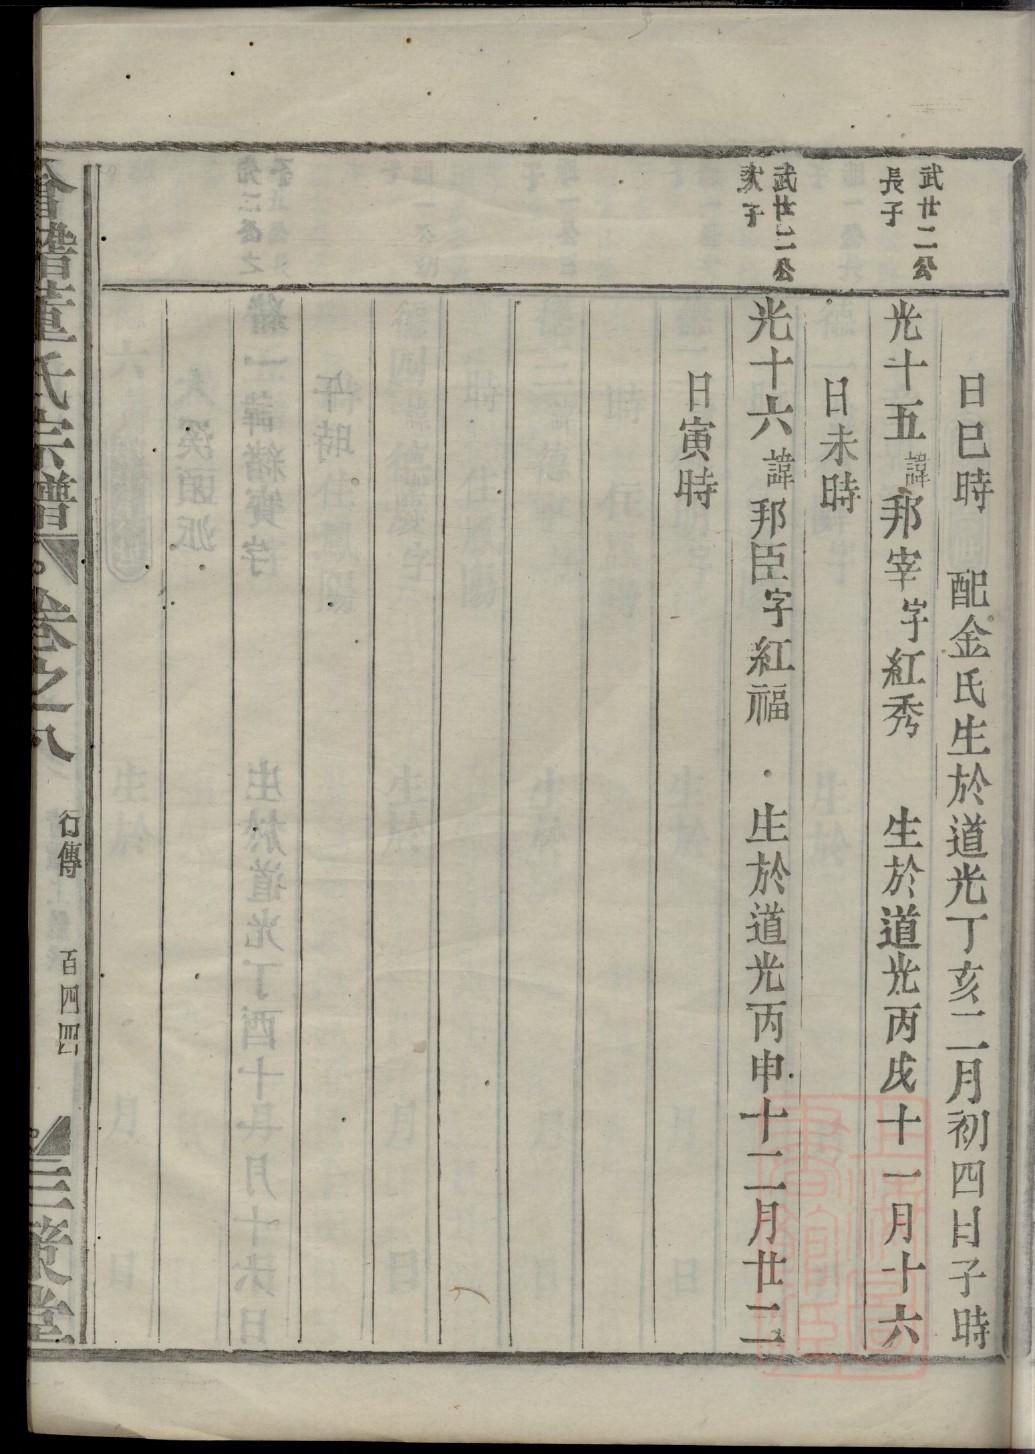 日巳時　配金氏生於道光丁亥二月初四日子時
武廿二公
長子
光十五諱邦宰字紅秀　生於道光丙戌十一月十六
日未時
武廿二公
次子
光十六諱邦臣字紅福　生於道光丙申十二月廿二
日寅時
會稽董氏宗譜　卷之八　行傳　百四四　三策堂